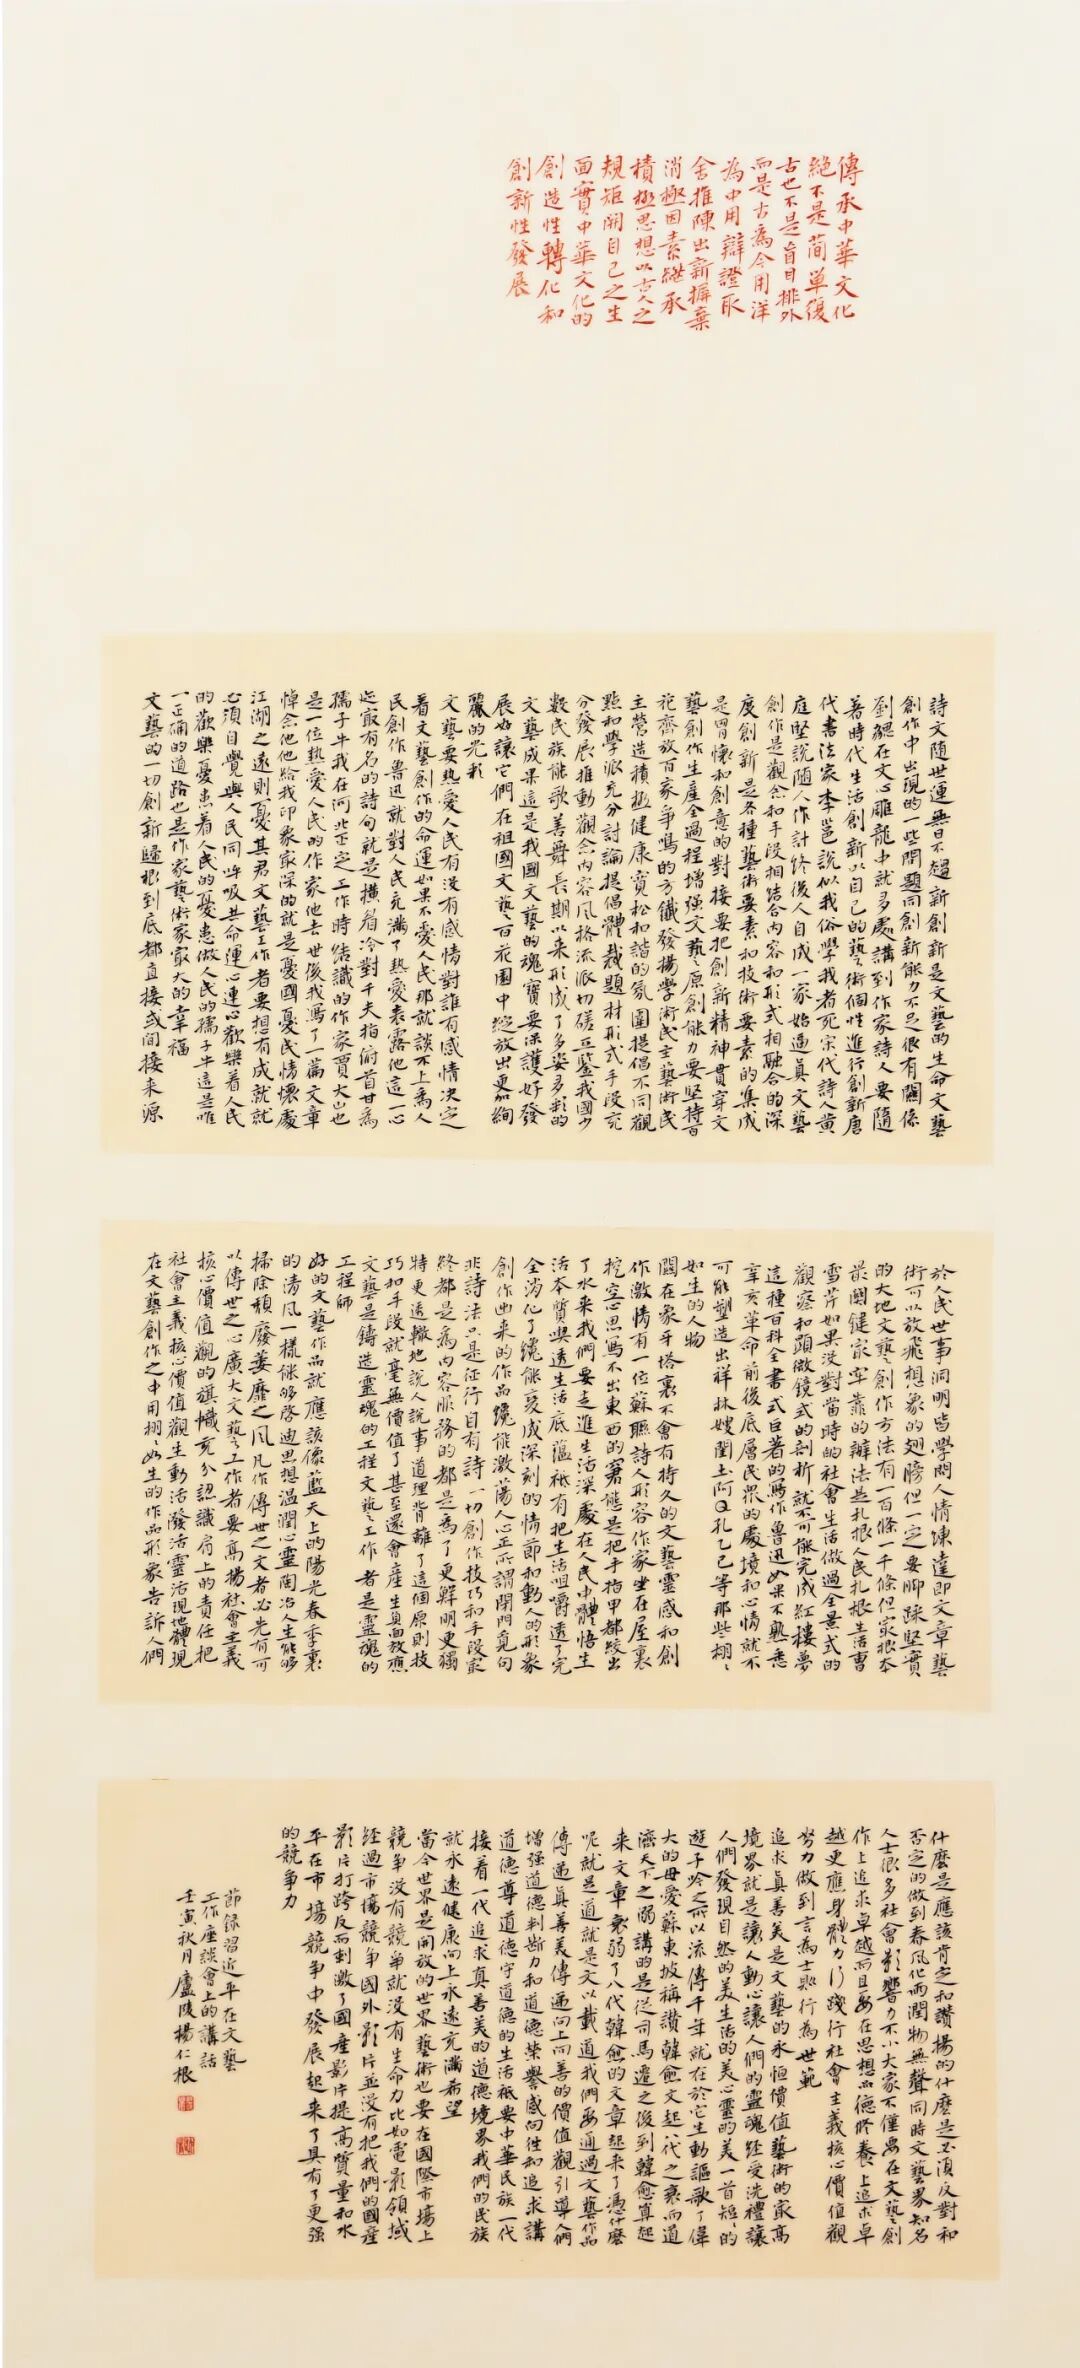 傳承中華文化
絕不是简單復
古也不是盲目排外
而是古爲今用洋
為中用辯證取
舍推陳出新摒棄
消極因素继承
積極思想以古人之
規矩開自己之生
面實中華文化的
創造性轉化和
創新性發展
詩文随世運無日不趨新創新是文藝的生命文藝
創作中出現的一些問題同創新能力不足很有關係
劉勰在文心雕龍中就多處講到作家詩人要隨
著時代生活創新以自己的藝術個性進行創新唐
代書法家李邕說似我俗學我者死宋代詩人黄
庭堅說隨人作計終後人自成一家始逼真文藝
創作是觀念和手段相结合内容和形式相融合的深
度創新是各種藝術要素和技術要素的集成
是胃懷和創意的對接要把創新精神貫穿文
藝創作生產全過程增强文藝原創能力要堅持百
花齊放百家争鳴的方針發揚學術民主藝術民
主營造積極健康寬松和諧的氛圍提倡不同觀
點和學派充分討論提倡體裁題材形式手段充
分發展推動觀念内容風格流派切磋互鑒我國少
數民族能歌善舞長期以来形成了多姿多彩的
文藝成果這是我國文藝的魂寶要保護好發
展好讓它們在祖國文藝百花園中綻放出更加絢
麗的光彩
文藝要熱愛人民有没有感情對誰有感情决定
着文藝創作的命運如果不愛人民那就談不上為人
民創作魯迅就對人民充滿了熱愛表露他這一心
迹最有名的詩句就是横眉冷對千夫指俯首甘為
孺子牛我在河北正定工作時结識的作家賈大山也
是一位熱愛人民的作家他去世後我寫了一篇文章
悼念他他給我印象最深的就是憂國憂民情懷處
江湖之遠則憂其君文藝工作者要想有成就就
必須自覺與人民同呼吸共命運心連心歡樂着人民
的歡樂憂患着人民的憂患做人民的孺子牛這是唯
一正确的道路也是作家藝術家最大的幸福
文藝的一切創新歸根到底都直接或間接来源
於人民世事洞明皆學問人情煉達即文章藝
術可以放飛想象的翅膀但一定要脚踩堅實
的大地文藝創作方法有一百條一千條但最根本
最關鍵最牢靠的辦法是扎根人民扎根生活曹
雪芹如果没對當時的社會生活做過全景式的
觀察和顕微鏡式的剖析就不可能完成紅樓夢
這種百科全書式巨著的寫作魯迅如果不熟悉
辛亥革命前後底層民眾的處境和心情就不
可能塑造出祥林嫂閏土阿Q孔乙己等那些栩々
如生的人物
關在象牙塔裏不會有持久的文藝靈感和創
作激情有一位蘇聯詩人形容作家坐在屋裏
挖空心思寫不出東西的窘態是把手指甲都绞出
了水来我們要走進生活深處在人民中體悟生
活本質吃透生活底藴祗有把生活咀嚼透了完
全消化了纔能變成深刻的情節和動人的形象
創作出来的作品纔能激蕩人心正所謂閉門覓句
非詩法只是征行自有詩一切創作技巧和手段最
終都是為内容服務的都是為了更鮮明更獨
特更透徹地説人説事説理背離了這個原則技
巧和手段就毫無價值了甚至還會產生負面效應
文藝是鑄造靈魂的工程文藝工作者是靈魂的
工程師
好的文藝作品就應該像藍天上的陽光春季裏
的清风一樣能够啓迪思想温潤心靈陶冶人生能够
掃除頽廢萎靡之風凡作傳世之文者必先有可
以傳世之心廣大文藝工作者要高揚社會主義
核心價值觀的旗幟充分認識肩上的责任把
社會主義核心價值觀生動活潑活靈活現地體現
在文藝創作之中用栩々如生的作品形象告訴人們
什麼是應該肯定和讚揚的什麼是必須反對和
否定的做到春風化雨潤物無聲同時文藝界知名
人士很多社會影響力不小大家不僅要在文藝創
作上追求卓越而且要在思想品德修養上追求卓
越更應身體力行踐行社會主義核心價值觀
努力做到言為士則行為世範
追求真善美是文藝的永恒價值藝術的最高
境界就是讓人動心讓人們的靈魂经受洗禮讓
人們發現自然的美生活的美心靈的美一首短々的
遊子吟之所以流傳千年就在於它生動謳歌了偉
大的母愛蘇東坡稱讚韓愈文起八代之衰而道
濟天下之溺講的是從司馬遷之後到韓愈算起
来文章衰弱了八代韓愈的文章起来了憑什麼
呢就是道就是文以載道我們要通過文藝作品
傳遞真善美傳遞向上向善的價值觀引導人們
增强道德判断力和道德榮譽感向往和追求講
道德尊道德守道德的生活祗要中華民族一代
接着一代追求真善美的道德境界我們的民族
就永遠健康向上永遠充滿希望
當今世界是開放的世界藝術也要在國際市場上
競争没有競争就没有生命力比如電影領域
经過市場競争國外影片並没有把我們的國産
影片打跨反而刺激了國産影片提高質量和水
平在市場競争中發展起来了具有了更强
的競争力
節録習近平在文藝
工作座談會上的講話
壬寅秋月廬陵楊仁根